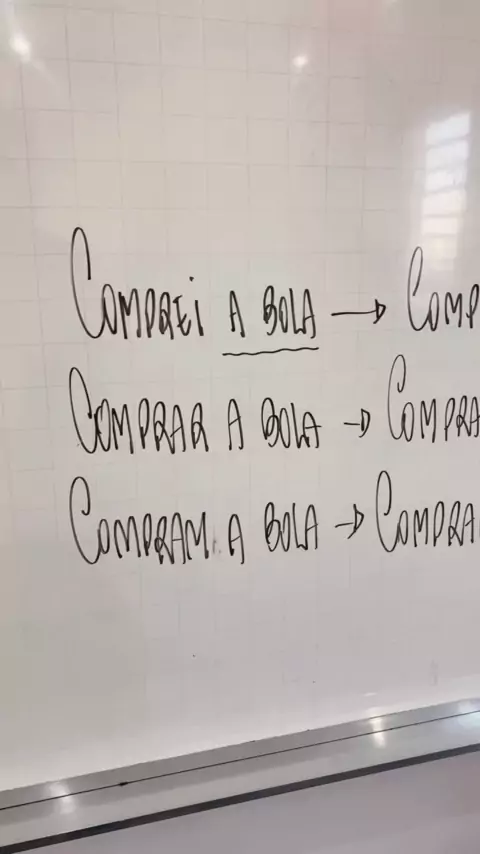 COMPREI A BOLA → COMP
COMPRAR A BOLA → COMPRA
COMPRAM A BOLA → COMPRA